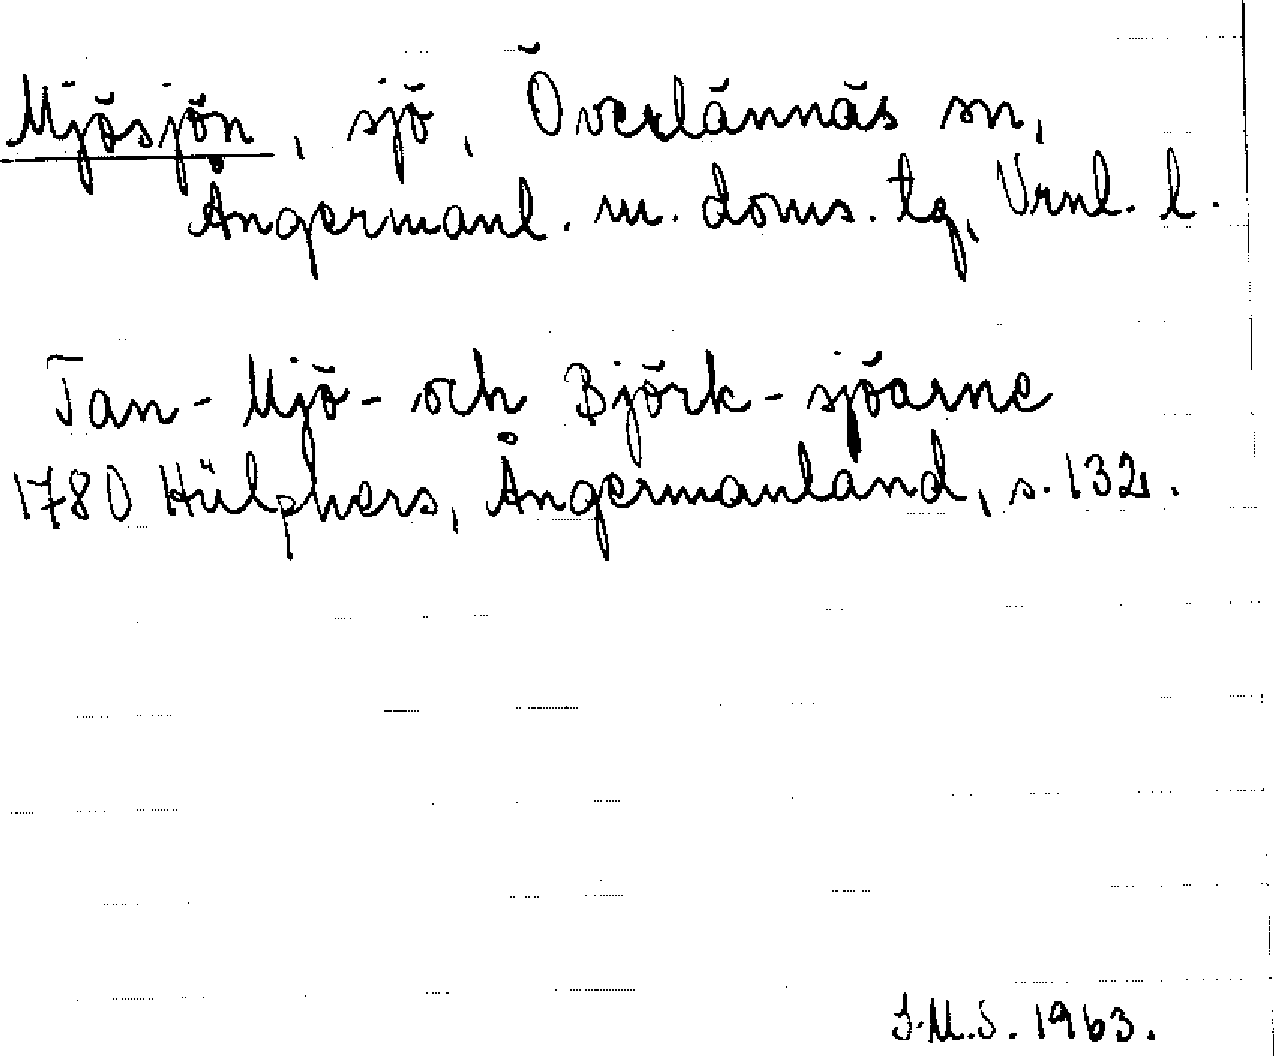 Mjösjön, sjö, Överlännäs sn,
Ångermanl. m. doms. tg, Vrnl. l.
Tan- Mjö- och Björk-sjöarne
1780 Hülphers, Ångermanland, s. 132.
S.M.S. 1963.